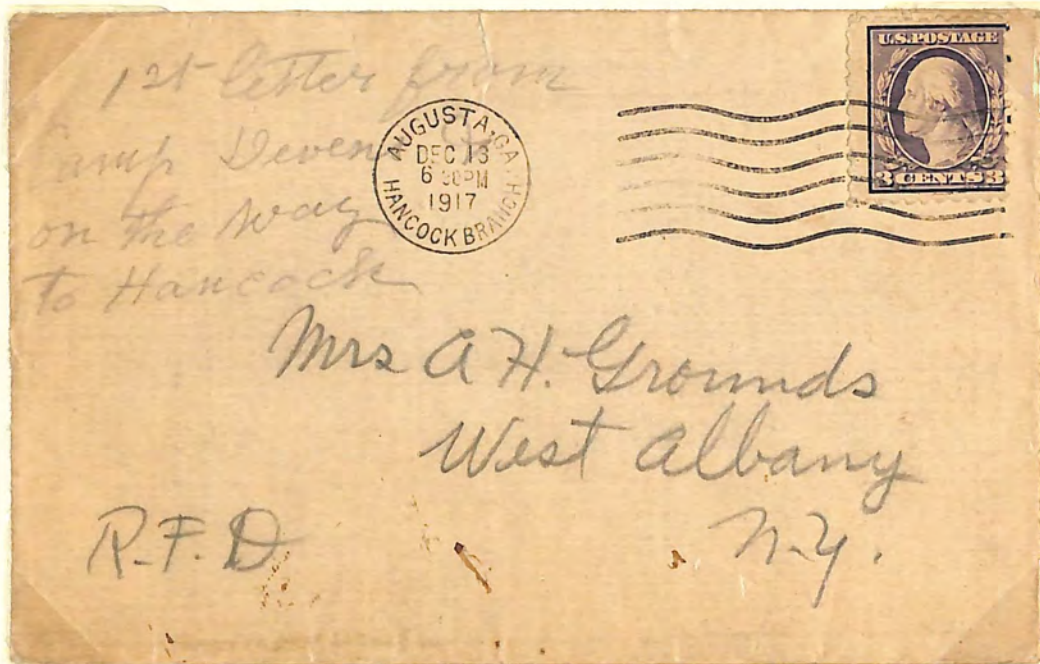 1st letter from
Camp Devens
on the way
to Hancock
AUGUSTA, GA.
DEC 13
6 30PM
1917
HANCOCK BRANCH
U.S. POSTAGE
3 CENTS 3
Mrs A H. Grounds
West Albany
R.F.D
N.Y.